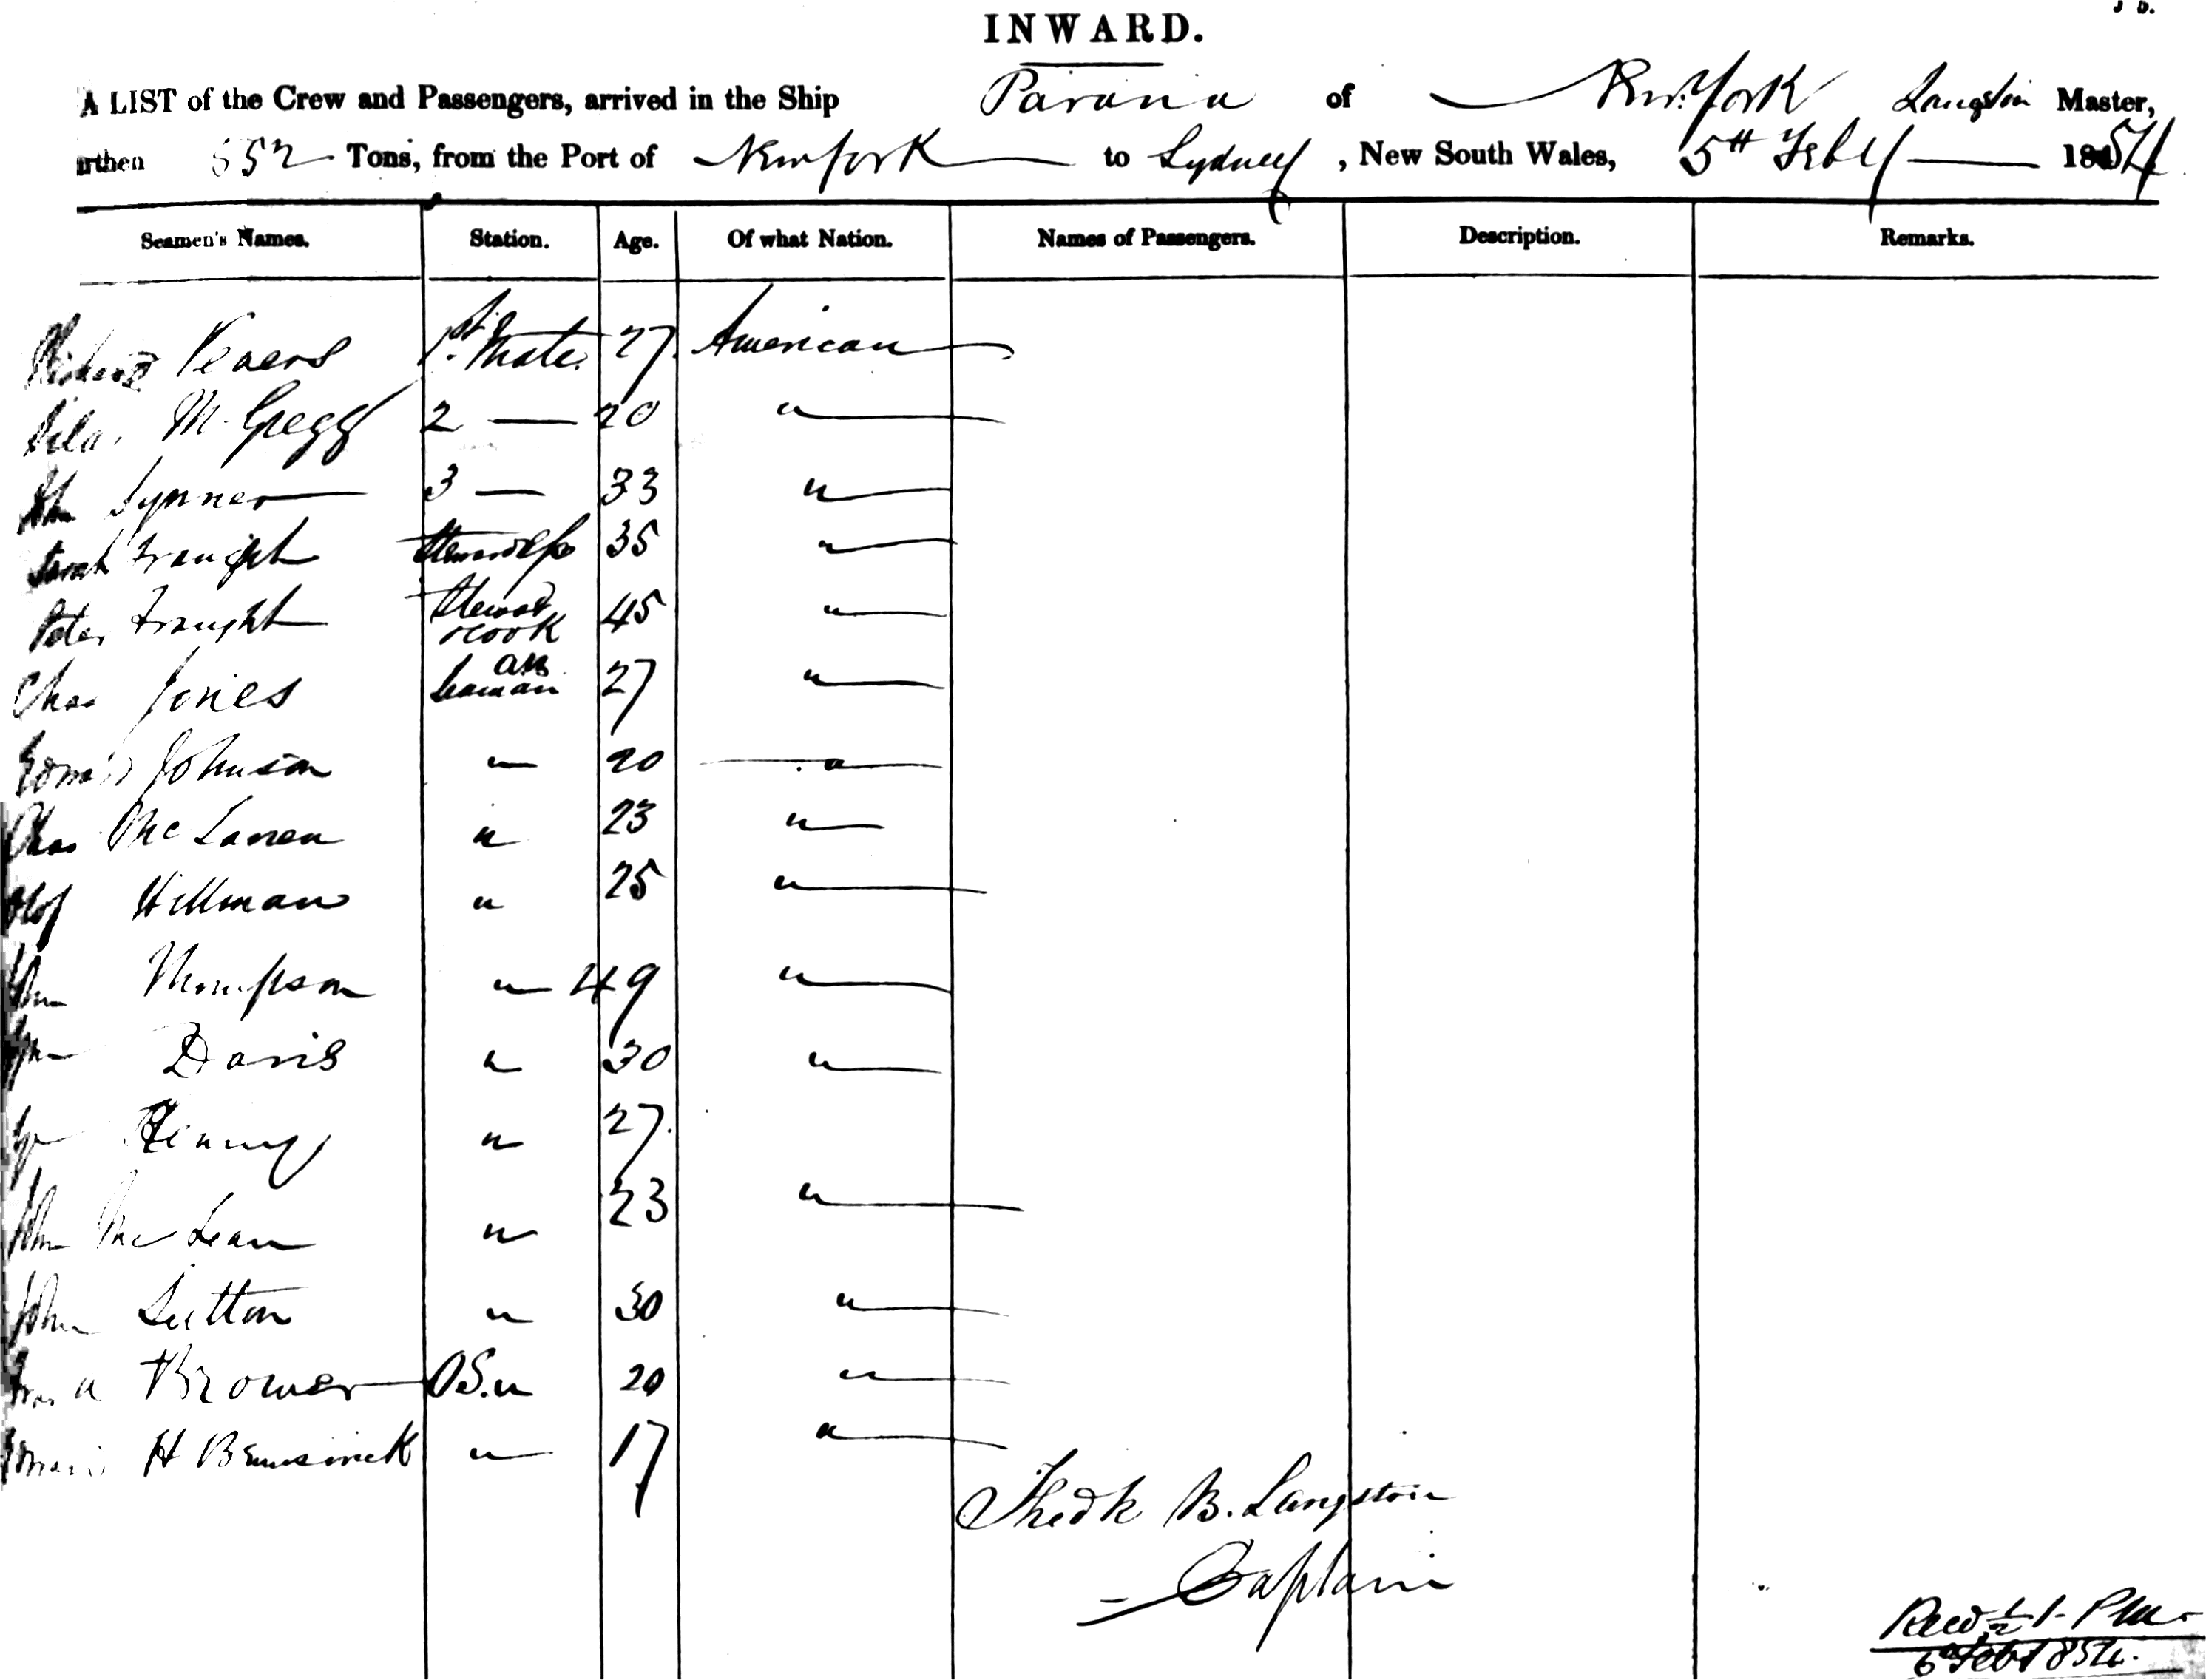 INWARD.
A LIST of the Crew and Passengers, arrived in the Ship Parana of New York Langston Master,
rthen 552 Tons, from the Port of New York to Sydney, New South Wales, 5th Feby 1854
Seamen's Names. Station. Age. Of what Nation. Names of Passengers. Description. Remarks.
1st Mate 27 American
M. Gregg 2 — 20 "
3 — 33 "
Fraught 35 "
Peter Fraught Steward & Cook 45 "
Chas Jones Seaman 27 "
Johnson " 20 "
Chas McLaren " 23 "
Hillman " 25 "
Thompson " 49 "
Davis " 30 "
Henry " 27.
John McLean " 23 "
John Sutton " 30 "
Brower OS. " 20 "
H " 17 "
B. Langston
Captain
Recd 1/2 1- PM
6 Feb 1854.